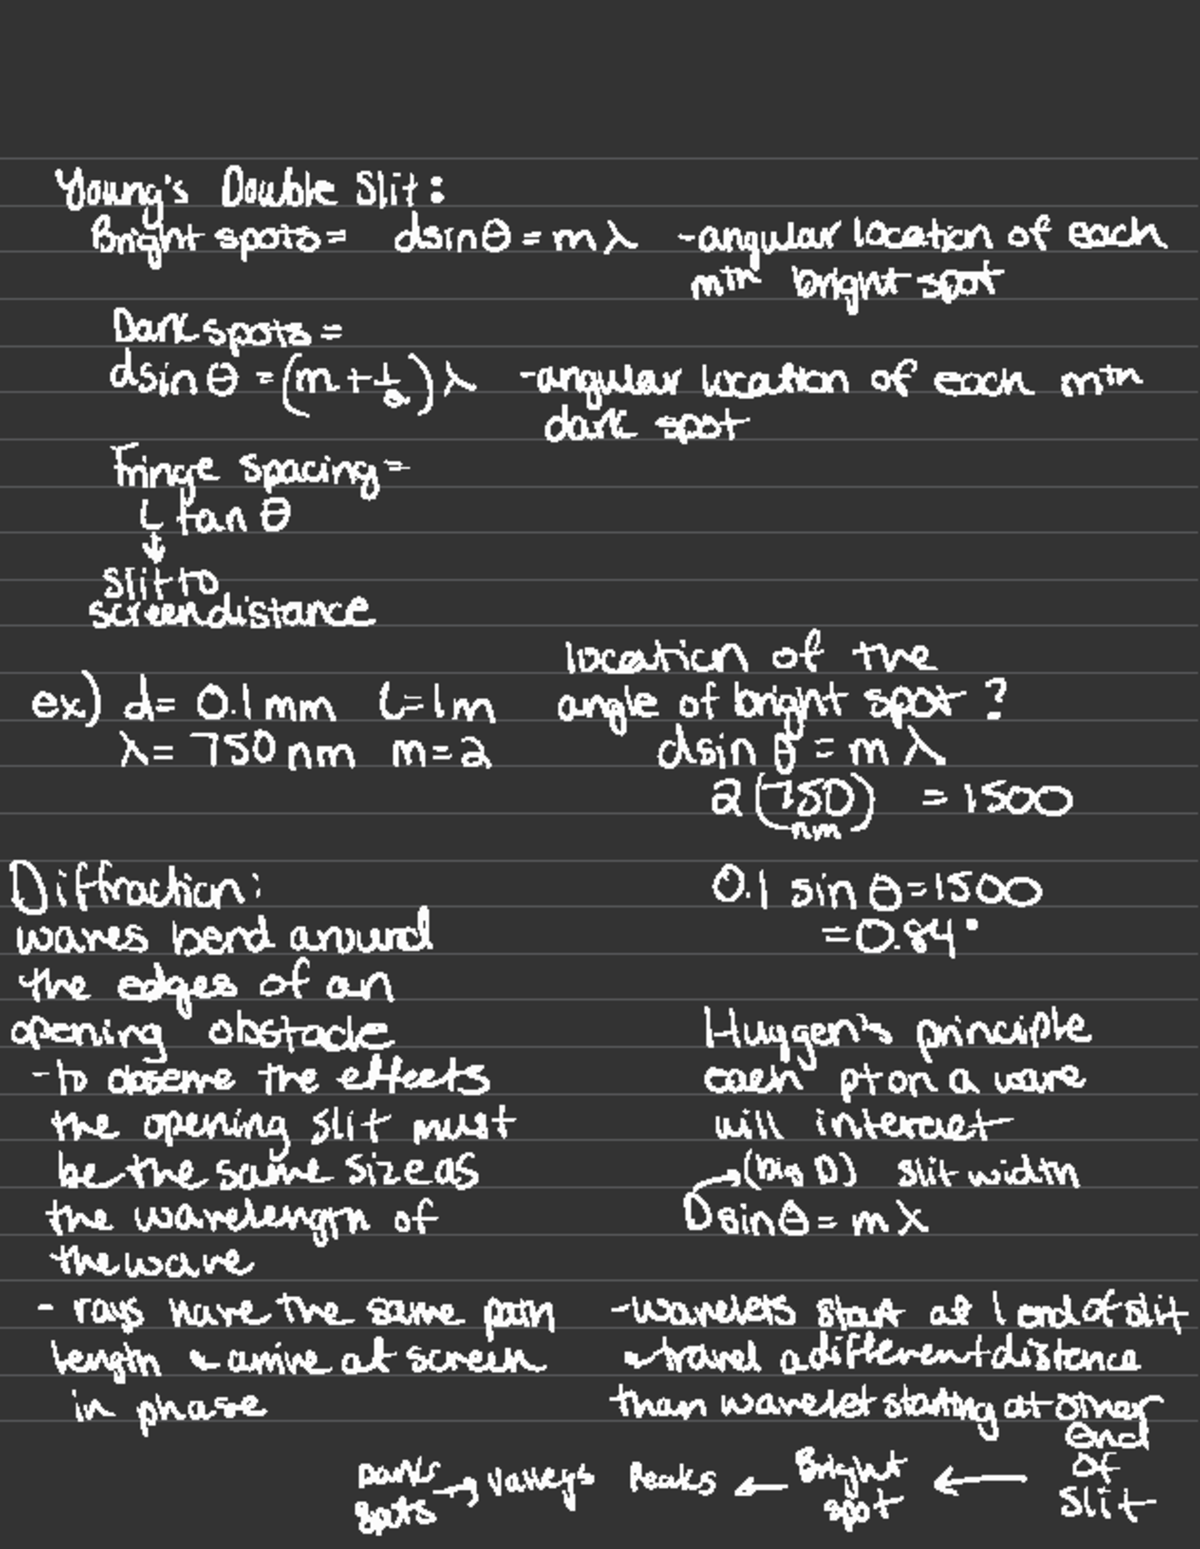 Young's Double Slit:
Bright spots = dsinθ = mλ -angular location of each
mth bright spot
Dark spots =
dsin θ = (m + 1/2) λ -angular location of each mth
dark spot
Fringe spacing =
L tan θ
↓
slit to
screen distance
ex) d= 0.1 mm L=1m
λ= 750 nm m=2
location of the
angle of bright spot ?
dsin θ = m λ
2 (750) = 1500
nm
0.1 sin θ = 1500
= 0.84°
Diffraction:
waves bend around
the edges of an
opening obstacle
- to observe the effects
the opening slit must
be the same size as
the wavelength of
the wave
- rays have the same path
length & arrive at screen
in phase
Huygen's principle
each pt on a wave
will interact
→(big D) slit width
Dsinθ = mλ
-wavelets start at 1 end of slit
& travel a different distance
than wavelet starting at other
end
of
slit
Darks → valleys Peaks ← Bright ←
spots spot